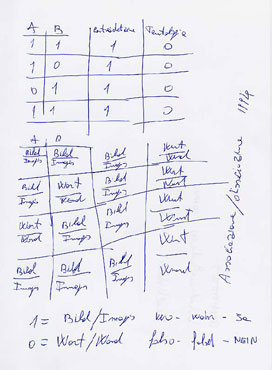 A B Tautologia
1 1 1 0
1 0 1 0
0 1 1 0
1 1 1 0
A B
Bild Bild Bild Wort
Image Image Image Word
Bild Wort Bild Wort
Image Word Image Word
Wort Bild Bild Wort
Word Image Image Word
Bild Bild Bild Wort
Image Image Image Word
1 = Bild / Image
0 = Wort / Word falso - NEIN
Associazione / 1994